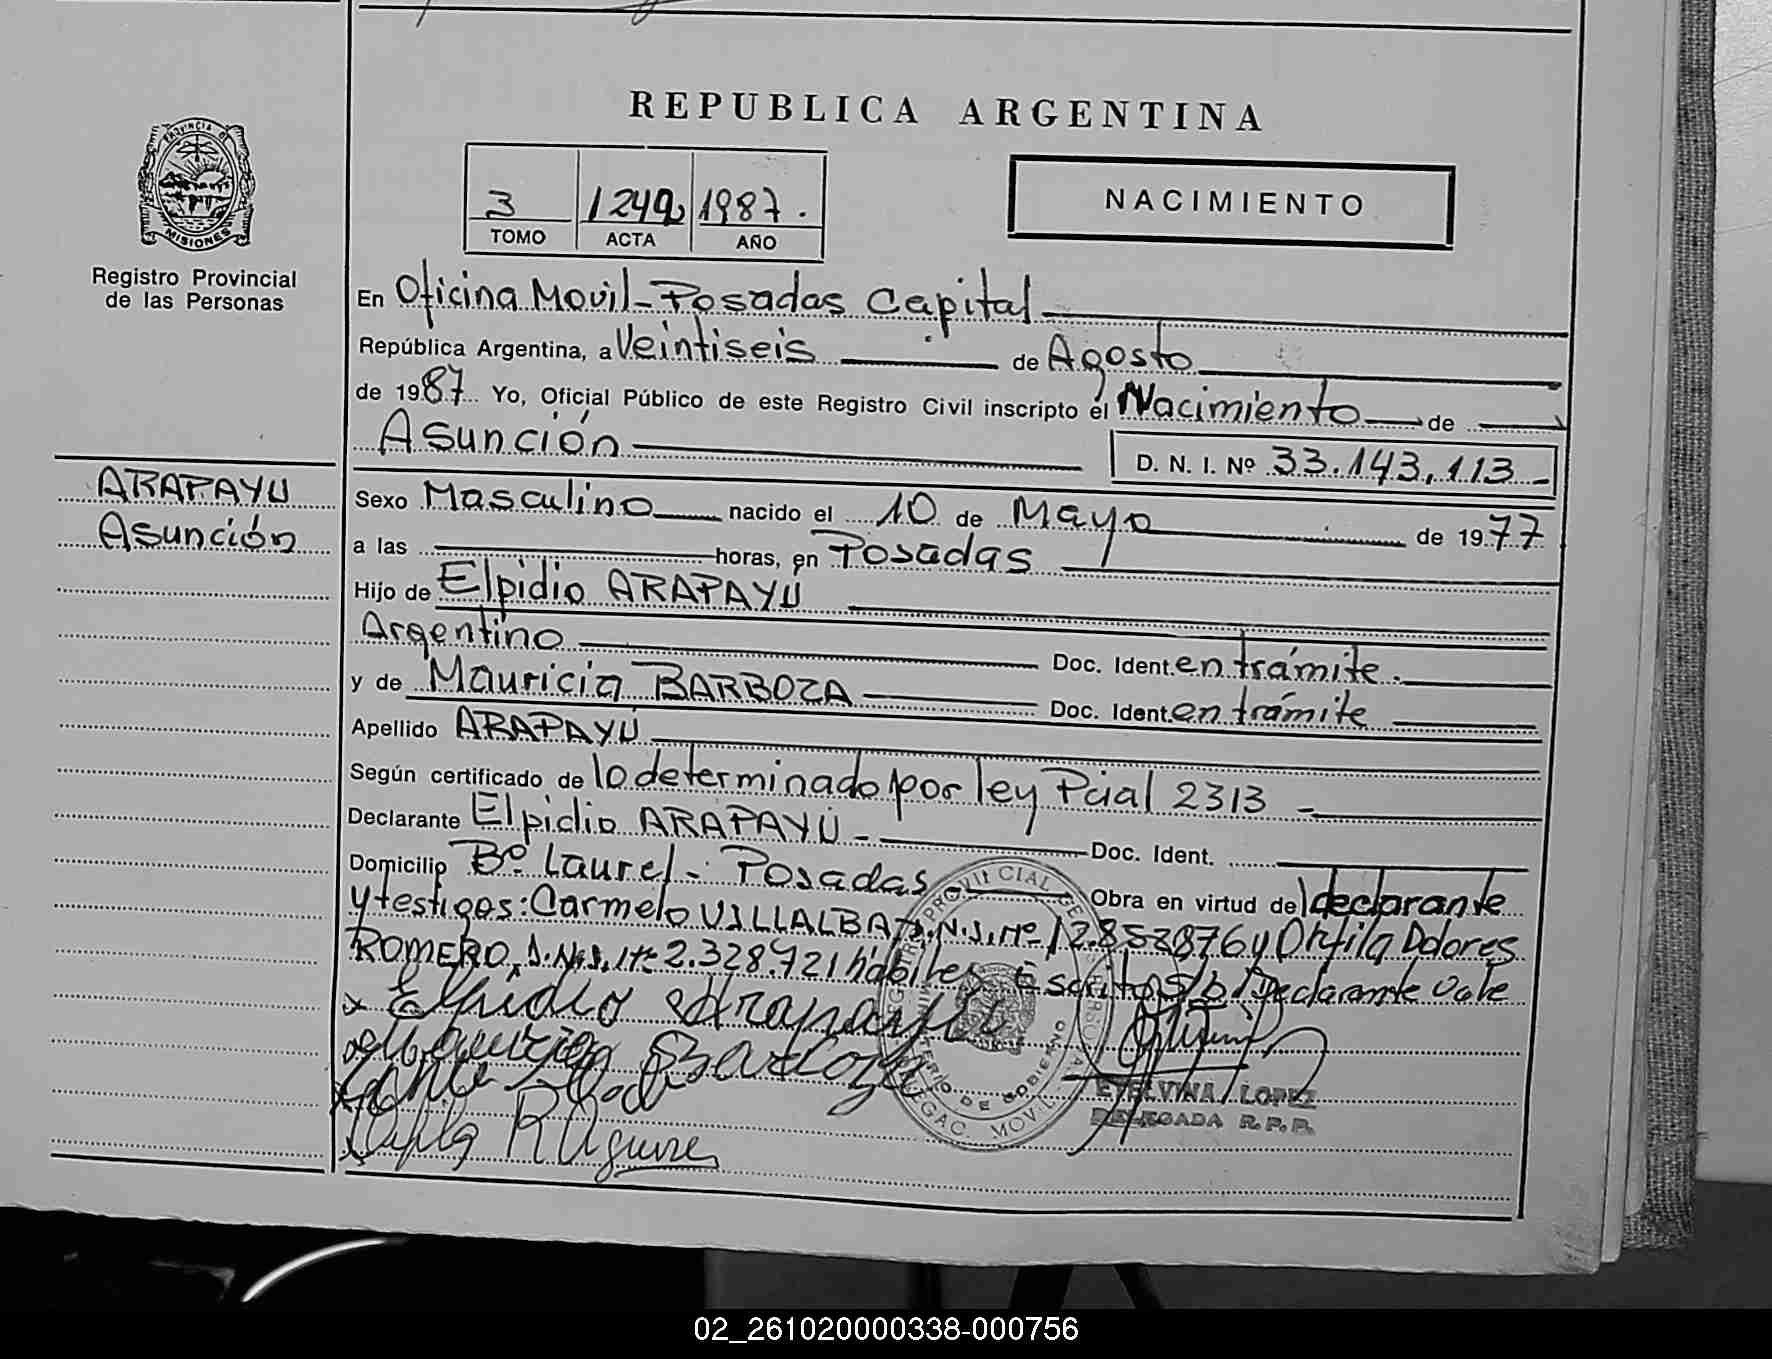 REPUBLICA ARGENTINA
PROVINCIA DE
MISIONES
Registro Provincial
de las Personas
3 1249 1987.
TOMO ACTA AÑO
NACIMIENTO
En Oficina Movil - Posadas Capital
República Argentina, a Veintiseis de Agosto
de 1987 Yo, Oficial Público de este Registro Civil inscripto el Nacimiento de
Asunción
D. N. I. Nº 33.143.113 -
ARAPAYU
Asunción
Sexo Masculino nacido el 10 de Mayo de 1977
a las horas, en Posadas
Hijo de Elpidio ARAPAYÚ
Argentino Doc. Ident. en trámite.
y de Mauricia BARBOZA Doc. Ident. en trámite
Apellido ARAPAYÚ
Según certificado de lo determinado por ley Pcial 2313 -
Declarante Elpidio ARAPAYÚ - Doc. Ident.
Domicilio Bº Laurel - Posadas - Obra en virtud de declarante
y testigos: Carmelo VILLALBA D.N.I. Nº 12.858876 y Dolores
ROMERO, D.N.I. Nº 2.328.721 hábiles Escrito s/b Declarante vale
Elpidio Arapayu
Mauricia Barboza
ETELVINA LOPEZ
DELEGADA R.P.P.
MINISTERIO DE GOBIERNO
MOVIL
02_261020000338-000756